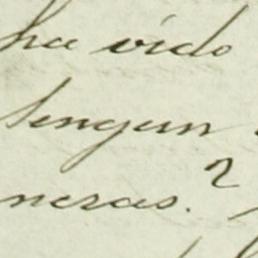 ha vido
tengan
neras.